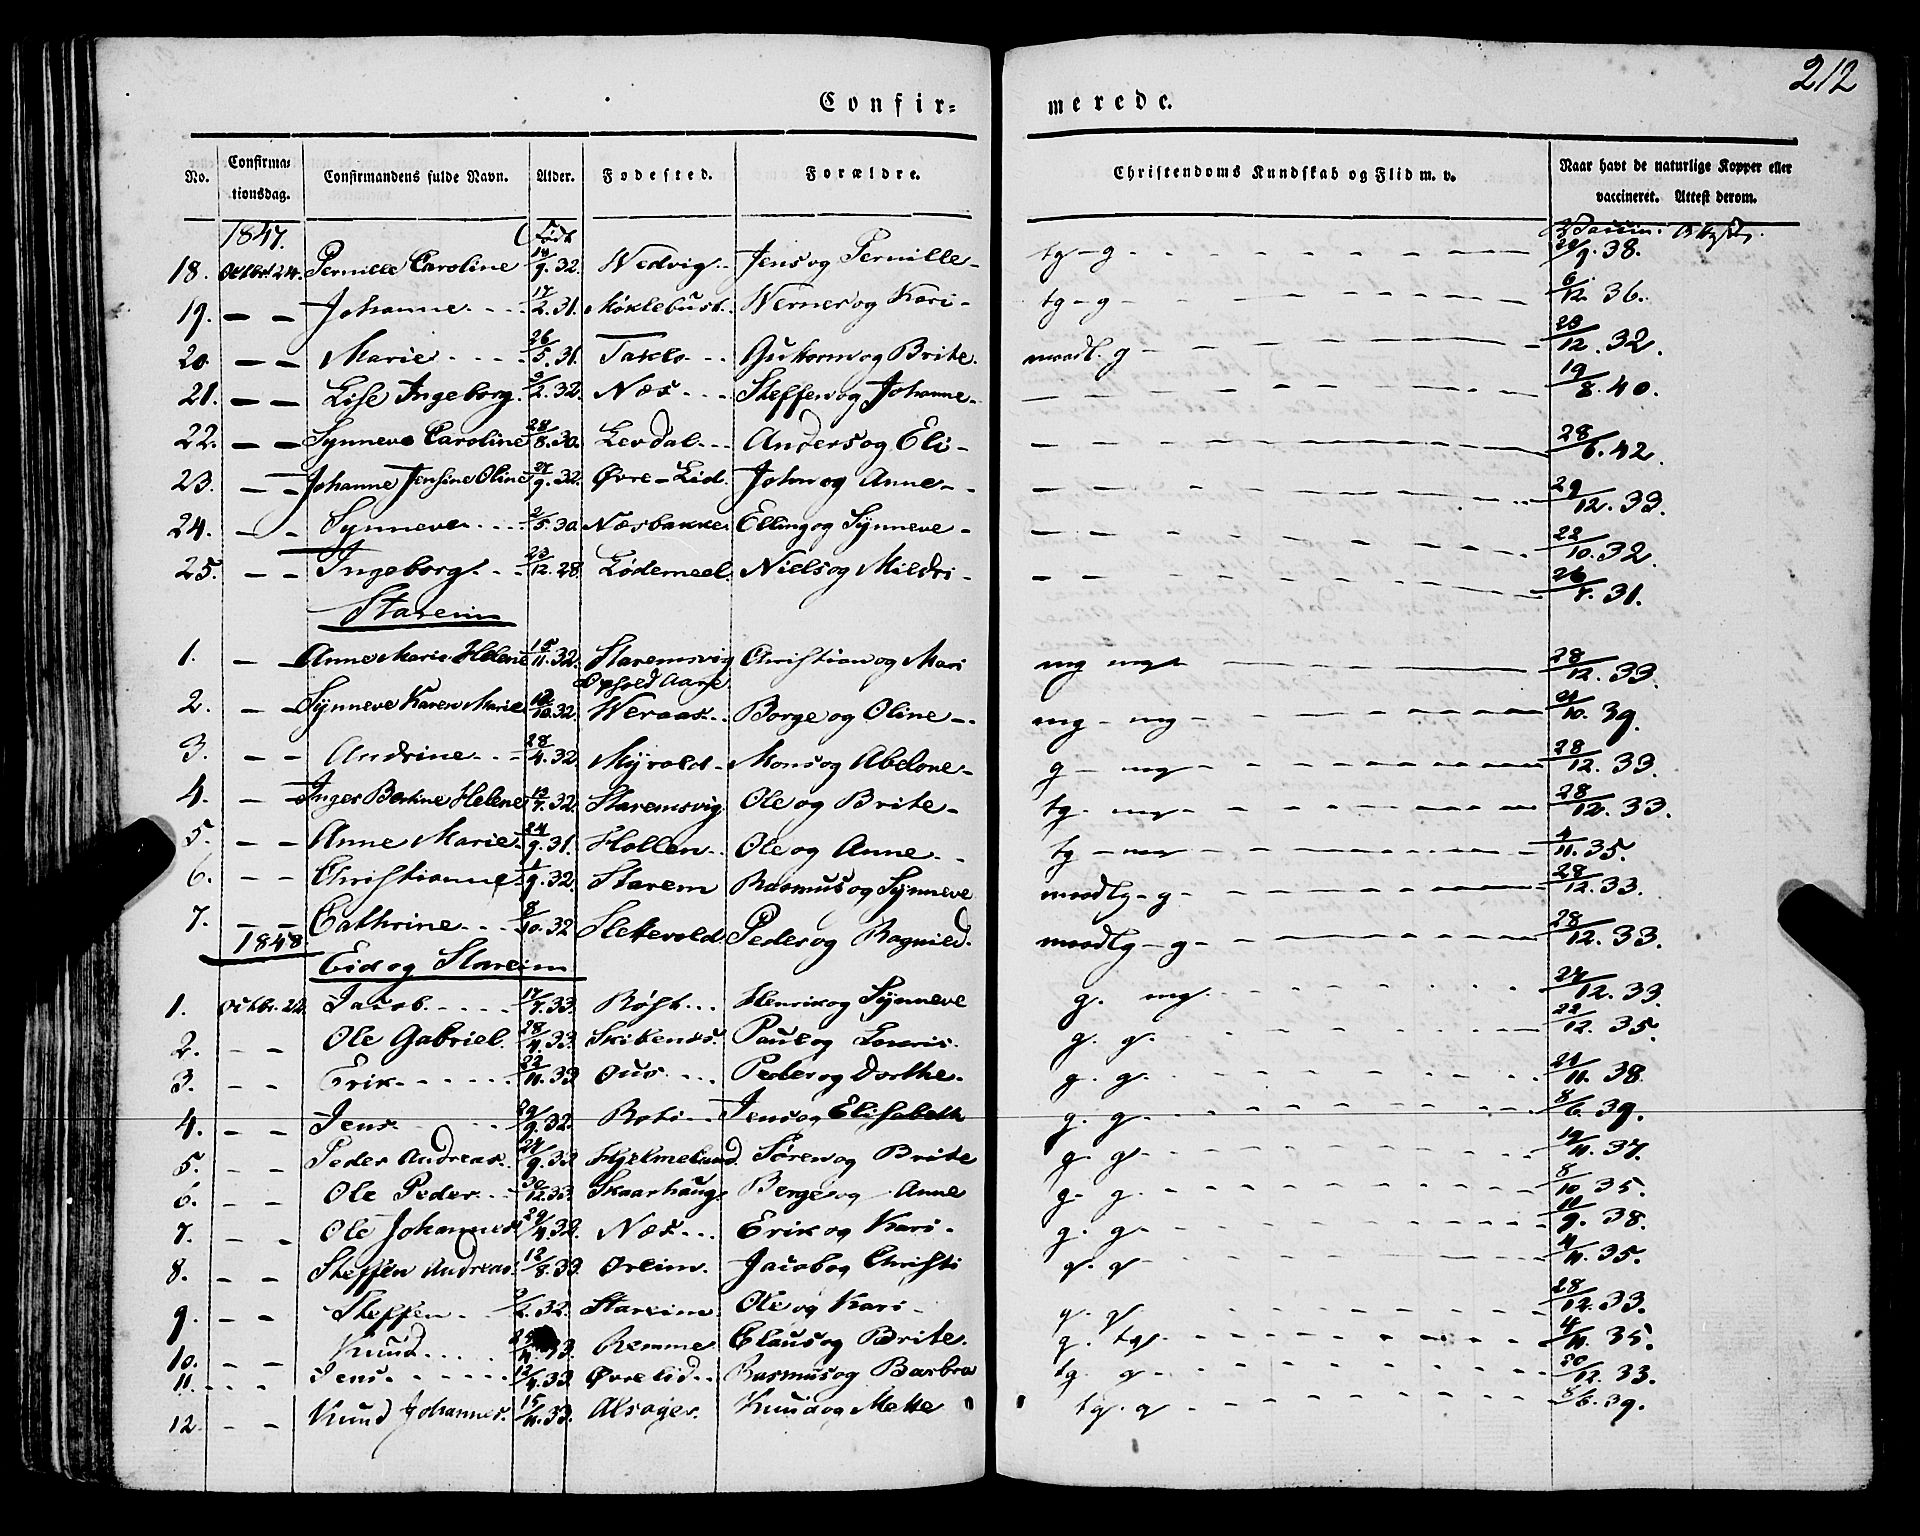 212
Confir= merede.
No. Confirma= tionsdag. Confirmandens fulde Navn. Alder. Fødested. Forældre. Christendoms Kundskab og Flid m. v. Naar havt de naturlige Kopper eller vaccineret. Attest derom.
1847. Født
18. Octbr 24. Pernille Caroline 32. Nedvig Jens og Pernille tg - g 9. 38.
19. — — Johanne 17/2. 31. Møklebust Werner og Kari tg - g 6/12. 36.
20. — — Marie 26/5. 31. Taklo Guttorm og Brite maadl. g 23/12. 32.
21. — — Lise Ingeborg 2. 32. Næs Steffen og Johanne — 19/8. 40.
22. — — Synneve Caroline 28/8. 30. Levdal Anders og Eli — 28/6. 42.
23. — — Johanne Jensine Oline 9. 32. Øvre-Lid John og Anne — 29/12. 33.
24. — — Synneve 2/5. 30. Næsbakke Elling og Synneve — 22/10. 32.
25. — — Ingeborg 23/12. 28. Lødemeel Niels og Mildri — 26 31.
Stareim
1. — — Anne Marie Helene 15/11. 32. Staremsvig Ophold Aare Christian og Mari mg mg 28/12. 33.
2. — — Synneve Karen Marie 10. 32. Weraas Børge og Oline mg - mg 10. 39.
3. — — Andrine 28/4. 32. Myrold Mons og Abelone g - mg 28/12. 33.
4. — — Inger Bertine Helene 32. Staremsvig Ole og Brite tg - mg 28/12. 33.
5. — — Anne Marie 24/9. 31. Hollen Ole og Anne tg - mg 4/11. 35.
6. — — Christianne 1/9. 32. Starem Rasmus og Synneve maadlg - g 28/12. 33.
7. — — Cathrine 8/10. 32 Hekevold Peder og Ragnild. maadlg - g 28/12. 33.
1848.
Eid og Stareim
1. Octbr. 22. Jacob 17/7. 33. Røst Henrik og Synneve g. mg. 12. 33.
2. — — Ole Gabriel 28/4. 33. Skibenes Paul og g. g. 22/12. 35.
3. — — Erik 22/11. 33 Ous Peder og Dorthe g. g. 11. 38.
4. — — Jens 9. 32. Roti Jens og Elisabeth g. g 8/6. 39.
5. — — Peder Andreas 9. 33 Hjelmeland Søren og Brite g. g 11. 37.
6 — — Ole Peder 30/12. 33. Skaarhaug Berge og Anne g. g. 8/10. 35.
7. — — Ole Johannes 29/4. 32. Næs Erik og Kari g. g 9. 38.
8. — — Steffen Andreas 12/8. 33. Øreim Jacob og Christi g. g 4/11. 35.
9 — — Steffen 2. 32. Stareim Ole og Kari g. g 28/12. 33.
10. — — Knud 11. 33. Remme Claus og Brite g. tg 4/11. 35.
11. — — Jens 12/4. 33. Øvre Lid Rasmus og Barbra tg. g 30/12. 33.
12. — — Knud Johannes 15/11. 33. Alsager Knud og Mette tg. g 8/6. 39.